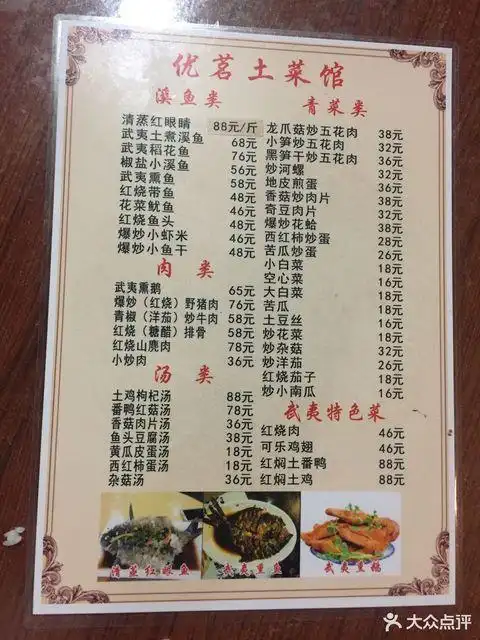 优茗土菜馆
溪鱼类
清蒸红眼睛 88元/斤
武夷土煮溪鱼 68元
武夷稻花鱼 76元
椒盐小溪鱼 56元
武夷熏鱼 58元
红烧带鱼 48元
花菜鱿鱼 46元
红烧鱼头 48元
爆炒小虾米 46元
爆炒小鱼干 48元
肉类
武夷熏鹅 65元
爆炒(红烧)野猪肉 76元
青椒(洋茄)炒牛肉 58元
红烧(糖醋)排骨 58元
红烧山麂肉 78元
小炒肉 36元
汤类
土鸡枸杞汤 88元
番鸭红菇汤 78元
香菇肉片汤 36元
鱼头豆腐汤 38元
黄瓜皮蛋汤 18元
西红柿蛋汤 18元
杂菇汤 36元
青菜类
龙爪菇炒五花肉 38元
小笋炒五花肉 32元
黑笋干炒五花肉 36元
炒河螺 32元
地皮煎蛋 36元
香菇炒肉片 38元
奇豆肉片 32元
爆炒花蛤 38元
西红柿炒蛋 28元
苦瓜炒蛋 26元
小白菜 18元
空心菜 18元
大白菜 18元
苦瓜 18元
土豆丝 16元
炒花菜 18元
炒杂菇 32元
炒洋茄 26元
红烧茄子 18元
炒小南瓜 16元
武夷特色菜
红烧肉 46元
可乐鸡翅 46元
红焖土番鸭 88元
红焖土鸡 88元
清蒸红眼鱼
武夷熏鱼
武夷熏鹅
大众点评